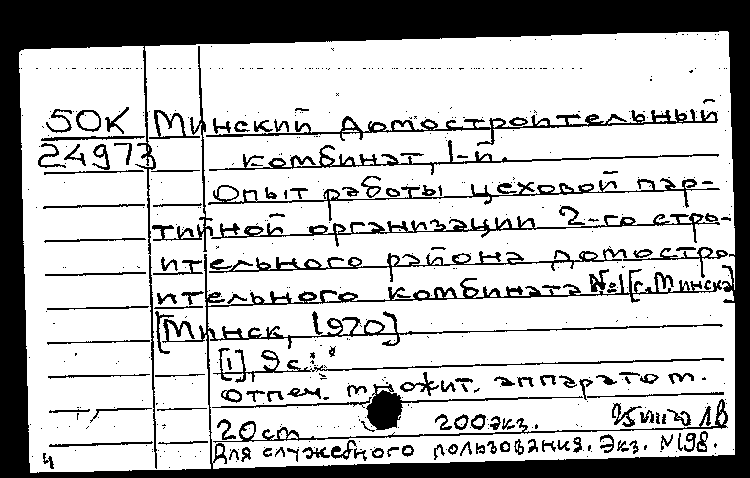 50К Минский домостроительный
24973 комбинат, 1-й.
Опыт работы цеховой пар-
тийной организации 2-го стро-
ительного района домостро-
ительного комбината №1 [г. Минска]
[Минск, 1970].
[1], 9 с.
отпеч. множит. аппаратом.
20 см. 200 экз.
Для служебного пользования. Экз. №198.
4